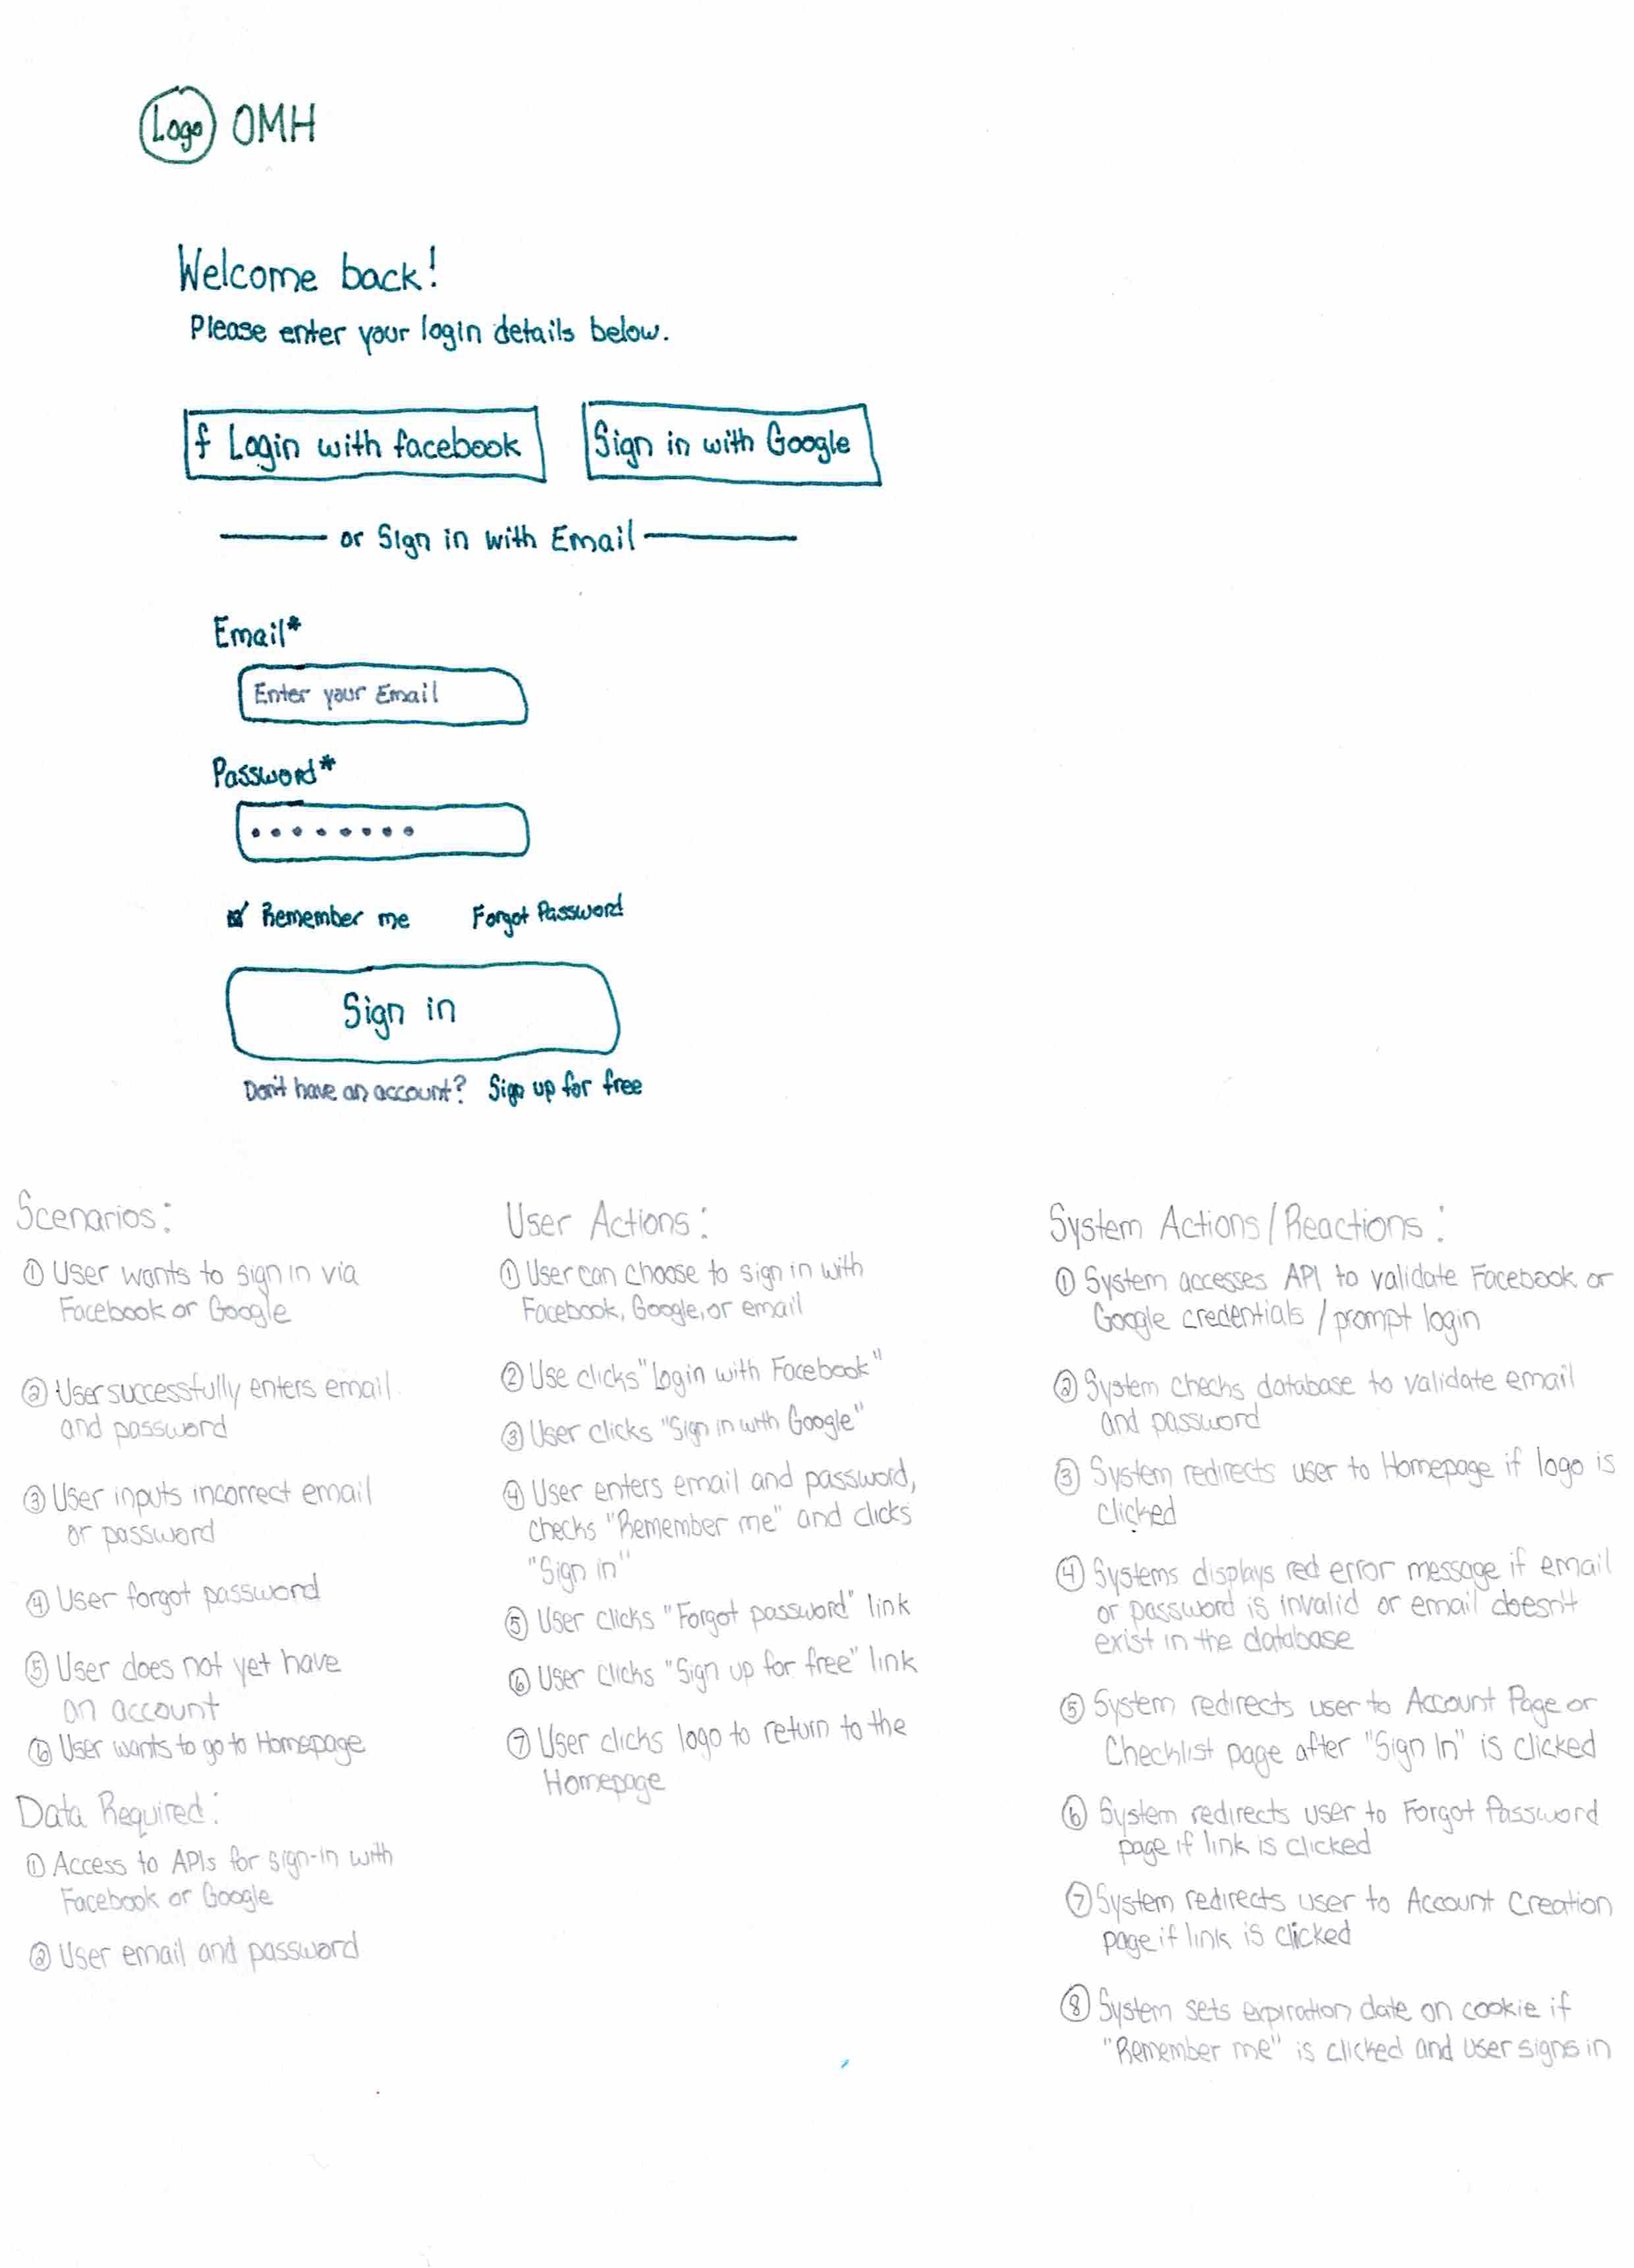 Logo OMH
Welcome back!
Please enter your login details below.
f Login with facebook
Sign in with Google
or Sign in with Email
Email*
Enter your Email
Password*
Remember me
Forgot Password
Sign in
Don't have an account? Sign up for free
Scenarios:
① User wants to sign in via
Facebook or Google
② User successfully enters email
and password
③ User inputs incorrect email
or password
④ User forgot password
⑤ User does not yet have
an account
⑥ User wants to go to Homepage
Data Required:
① Access to APIs for sign-in with
Facebook or Google
② User email and password
User Actions:
① User can choose to sign in with
Facebook, Google, or email
② Use clicks "Login with Facebook"
③ User clicks "Sign in with Google"
④ User enters email and password,
checks "Remember me" and clicks
"Sign in"
⑤ User clicks "Forgot password" link
⑥ User clicks "Sign up for free" link
⑦ User clicks logo to return to the
Homepage
System Actions/Reactions:
① System accesses API to validate Facebook or
Google credentials / prompt login
② System checks database to validate email
and password
③ System redirects user to Homepage if logo is
clicked
④ Systems displays red error message if email
or password is invalid or email doesn't
exist in the database
⑤ System redirects user to Account Page or
Checklist page after "Sign In" is clicked
⑥ System redirects user to Forgot Password
page if link is clicked
⑦ System redirects user to Account Creation
page if link is clicked
⑧ System sets expiration date on cookie if
"Remember me" is clicked and user signs in